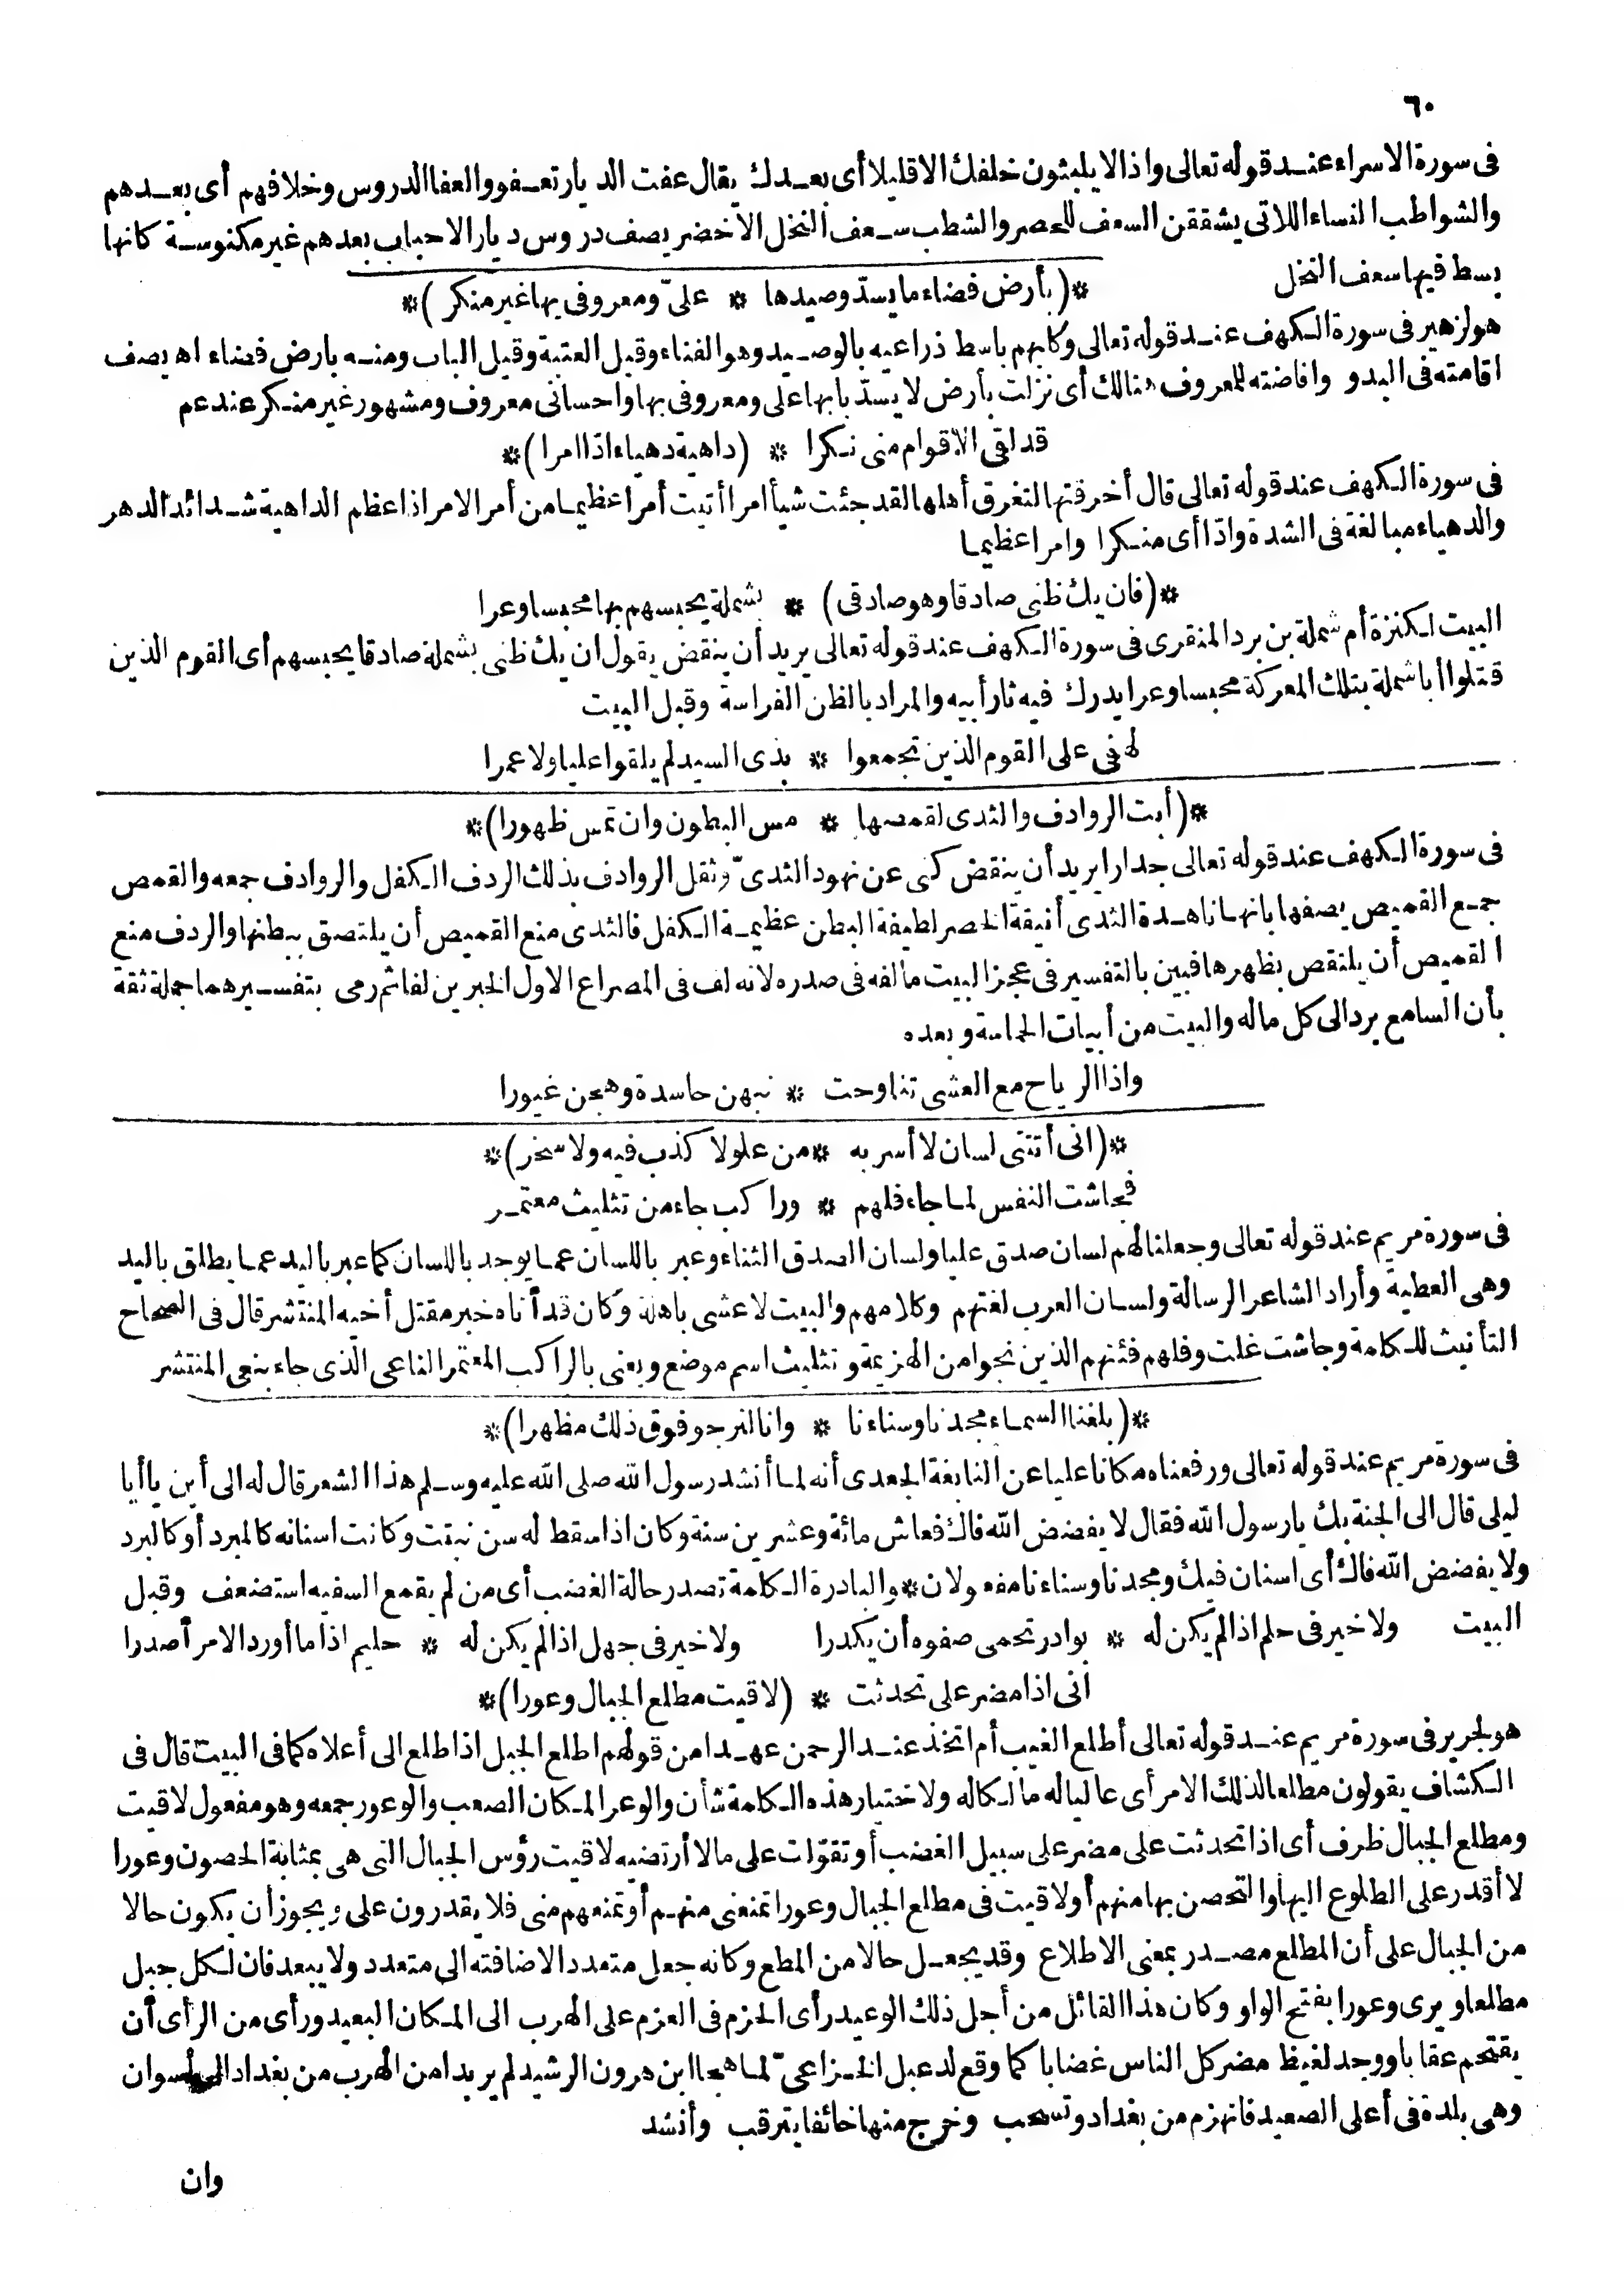 ٦٠
فى سورة الاسراء عند قوله تعالى واذا لا يلبثون خلفك الا قليلا أى بعدك يقال عفت الديار تعفو والعفا الدروس وخلافهم أى بعدهم
والشواطب النساء اللاتى يشققن السعف للحصر والشطب سعف النخل الاخضر يصف دروس ديار الاحباب بعدهم غير مكنوسة كانها
بسط فيها سعف النخل
*(بأرض فضاء ما يسدّ وصيدها * علىّ ومعروفى بها غير منكر)*
هو لزهير فى سورة الكهف عند قوله تعالى وكلبهم باسط ذراعيه بالوصيد وهو الفناء وقيل العتبة وقيل الباب ومنه بارض فضاء اه يصف
اقامته فى البدو وافاضته للمعروف هنالك أى نزلت بأرض لا يسدّ بابها على ومعروفى بها واحسانى معروف ومشهور غير منكر عندهم
قد لقى الاقوام منى نكرا * (داهية دهياء ادّا امرا)*
فى سورة الكهف عند قوله تعالى قال أخرقتها لتغرق أهلها لقد جئت شيأ امرا أتيت أمرا عظيما من أمر الامر اذا عظم الداهية شدائد الدهر
والدهياء مبالغة فى الشدة وادّا أى منكرا وامرا عظيما
*(فان يك ظنى صادقا وهو صادقى) * بشملة يحبسهم بها محبسا وعرا
البيت لكنزة أم شملة بن برد المنقرى فى سورة الكهف عند قوله تعالى يريد أن ينقض يقول ان يك ظنى بشملة صادقا يحبسهم أى القوم الذين
قتلوا أبا شملة بتلك المعركة محبسا وعرا يدرك فيه ثار أبيه والمراد بالظن الفراسة وقبل البيت
لهفى على القوم الذين تجمعوا * بذى السيد لم يلقوا عليا ولا عمرا
*(أبت الروادف والثدى لقمصها * مس البطون وان تمس ظهورا)*
فى سورة الكهف عند قوله تعالى جدارا يريد أن ينقض كنى عن نهود الثدىّ وثقل الروادف بذلك الردف الكفل والروادف جمعه والقمص
جمع القميص يصفها بانها ناهدة الثدى أنيقة الخصر لطيفة البطن عظيمة الكفل فالثدى منع القميص أن يلتصق ببطنها والردف منع
القميص أن يلتقص بظهرها فبين بالتفسير فى عجز البيت ما لفه فى صدره لانه لف فى المصراع الاول الخبرين لفا ثم رمى بتفسيرهما جملة ثقة
بأن السامع يرد الى كل ماله والبيت من أبيات الحماسة وبعده
واذا الرياح مع العشى تناوحت * نبهن حاسدة وهجن غيورا
*(انى أتتنى لسان لا أسر به * من علو لا كذب فيه ولا سخر)*
فجاشت النفس لما جاء فلهم * وراكب جاء من تثليث معتمر
فى سورة مريم عند قوله تعالى وجعلنا لهم لسان صدق عليا ولسان الصدق الثناء وعبر باللسان عما يوجد باللسان كما عبر باليد عما يطلق باليد
وهى العطية وأراد الشاعر الرسالة ولسان العرب لغتهم وكلامهم والبيت لاعشى باهلة وكان قد أتاه خبر مقتل أخيه المنتشر قال فى الصحاح
التأنيث للكلمة وجاشت غلت وفلهم فئتهم الذين نجوا من الهزيمة وتثليث اسم موضع ويعنى بالراكب المعتمر الناعى الذى جاء بنعى المنتشر
*(بلغنا السماء مجدنا وسناءنا * وانا لنرجو فوق ذلك مظهرا)*
فى سورة مريم عند قوله تعالى ورفعناه مكانا عليا عن النابغة الجعدى أنه لما أنشد رسول الله صلى الله عليه وسلم هذا الشعر قال له الى أين يا أبا
ليلى قال الى الجنة بك يا رسول الله فقال لا يفضض الله فاك فعاش مائة وعشرين سنة وكان اذا سقط له سن نبتت وكانت اسنانه كالمبرد أو كالبرد
ولا يفضض الله فاك أى اسنان فيك ومجدنا وسناءنا مفعولان * والبادرة الكلمة تصدر حالة الغضب أى من لم يقمع السفيه استضعف وقبل
البيت ولا خير فى حلم اذا لم يكن له * بوادر تحمى صفوه أن يكدرا ولا خير فى جهل اذا لم يكن له * حليم اذا ما أورد الامر أصدرا
انى اذا مضر على تحدثت * (لاقيت مطلع الجبال وعورا)*
هو لجرير فى سورة مريم عند قوله تعالى أطلع الغيب أم اتخذ عند الرحمن عهدا من قولهم اطلع الجبل اذا طلع الى أعلاه كما فى البيت قال فى
الكشاف يقولون مطلعا لذلك الامر أى عاليا له مالكا له ولاختيار هذه الكلمة شأن والوعر المكان الصعب والوعور جمعه وهو مفعول لاقيت
ومطلع الجبال ظرف أى اذا تحدثت على مضر على سبيل الغضب أو تقوّلت على ما لا أرتضيه لاقيت رؤس الجبال التى هى بمثابة الحصون وعورا
لا أقدر على الطلوع اليها والتحصن بها منهم أو لاقيت فى مطلع الجبال وعورا تمنعنى منهم أو تمنعهم منى فلا يقدرون على ويجوز أن يكون حالا
من الجبال على أن المطلع مصدر بمعنى الاطلاع وقد يجعل حالا من المطلع وكانه جعل متعددا لاضافته الى متعدد ولا يبعد فان لكل جبل
مطلعا ويرى وعورا بفتح الواو وكان هذا القائل من أجل ذلك الوعيد رأى الحزم فى العزم على الهرب الى المكان البعيد ورأى من الرأى أن
يقتحم عقابا ووجد لغيظ مضر كل الناس غضابا كما وقع لدعبل الخزاعىّ لما هجا ابن هرون الرشيد لم ير بدا من الهرب من بغداد الى أسوان
وهى بلدة فى أعلى الصعيد فانهزم من بغداد وتسحب وخرج منها خائفا يترقب وأنشد
وان